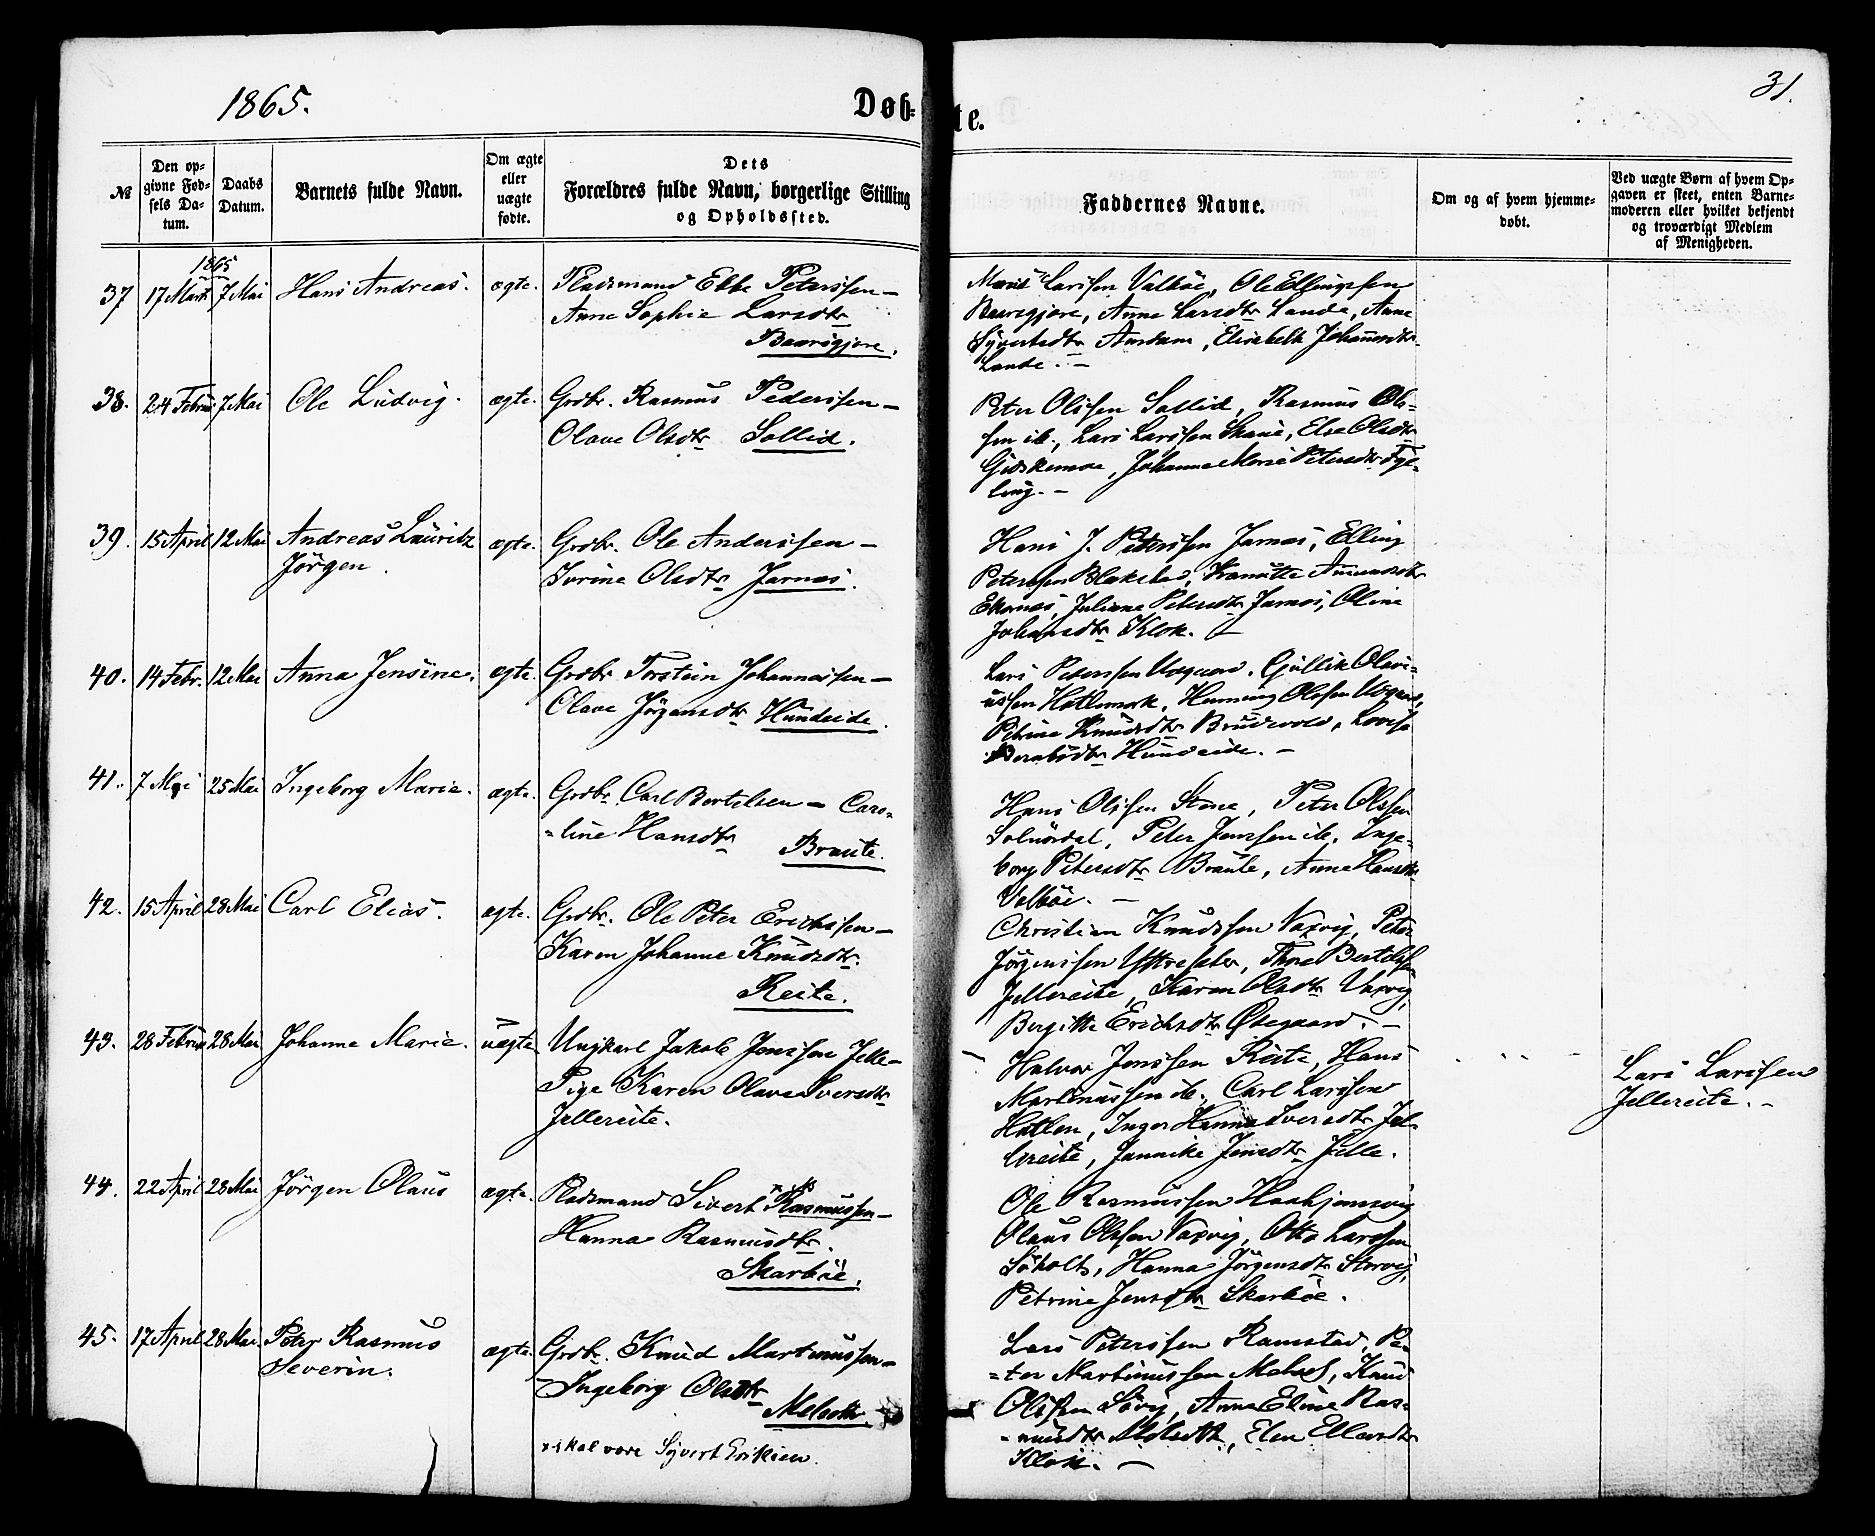 1865.
Døb-
te.
31.
№
Den op-
givne Fød-
sels Da-
tum.
Daabs
Datum.
Barnets fulde Navn.
Om ægte
eller
uægte
fødte.
Dets
Forældres fulde Navn, borgerlige Stilling
og Opholdssted.
Faddernes Navne.
Om og af hvem hjemme-
døbt.
Ved uægte Børn af hvem Op-
gaven er skeet, enten Barne-
moderen eller hvilket bekjendt
og troværdigt Medlem
af Menigheden.
1865
37 17 Marts 7 Mai Hans Andreas. ægte. Pladsmand Ebbe Peterssen —
Anne Sophie Larsdtr
Baarsgjore.
Larssen Valböe, Ole Ellingssen
Baarsgjore, Anne Larsdtr Lande, Anne
Syvertsdtr Amdam, Elisabeth Johansdtr
Lande. —
38. 24 Februar 7 Mai Ole Ludvig. ægte. Grdbr. Rasmus Pederssen —
Olave Olsdtr Sollid.
Peter Olssen Sollid, Rasmus Ols-
sen ib., Lars Larssen Skane, Else Olsdtr
Gidskemoe, Johanne Marie Petersdtr Fyl-
ling. —
39. 15 April 12 Mai Andreas Lauritz
Jörgen. ægte. Grdbr. Ole Anderssen —
Ivrine Olsdtr Jarnes.
Hans J. Peterssen Jarnes, Elling
Peterssen Blakstad, Amundsdtr
Ekornes, Juliane Petersdtr Jarnes, Oline
Johansdtr Klok. —
40. 14 Febr. 12 Mai Anna Jensine. ægte. Grdbr Torstein Johannessen —
Olave Jörgensdtr Hundeide.
Lars Peterssen, Gullik Olavi-
ussen Hatlemark, Henning Olssen
Petrine Knudsdtr Brudevold, Lovise
Hundeide. —
41. 7 Mai 25 Mai Ingeborg Marie. ægte. Grdbr Carl Bertelsen — Caro-
-line Hansdtr
Braute.
Hans Olssen Stene, Peter Olssen
Solnørdal, Peter Jenssen ib., Inge-
borg Petersdtr Braute, Anne Hansdtr
Valböe. —
42. 15 April 28 Mai Carl Elias. ægte. Grdbr. Ole Peter Erichssen —
Karen Johanne Knudsdtr.
Reite.
Christian Knudssen Vaxvig, Peter
Jörgenssen Yttresæter, Bertelssen
Jellereite, Karen Olsdtr Vaxvig,
Bergitte Erichsdtr Øiegaard. —
43. 28 Februar 28 Mai Johanne Marie. uægte Ungkarl Jakob Jenssen Jelle —
Pige Karen Olave Iversdtr
Jellereite.
Halvor Jenssen Reite, Hans
Martinussen ib., Carl Larssen
Hatlen, Inger Hanna Iversdtr Jel-
lereite, Jannike Jensdtr Jelle.
Lars Larssen
Jellereite. —
44. 22 April 28 Mai Jörgen Olaus ægte. Pladsmand Sivert Rasmussen —
Hanna Rasmusdtr.
Skarböe.
Ole Rasmussen Haahjemsvig
Olaus Olssen Vaxvig, Otto Larssen
Söholt, Hanna Jörgensdtr Storvig,
Petrine Jensdtr Skarböe.
45. 17 April 28 Mai. Peter Rasmus
Severin. ægte. Grdbr. Knud Martinussen —
Ingeborg Olsdtr
Melseth.
Lars Peterssen Ramstad, Pe-
-ter Martinussen Melset, Knud
Olssen Sövig, Anna Eline Ras-
-musdtr, Elen Ellandsdtr
Klok. —
x skal være Syvert Eriksen.